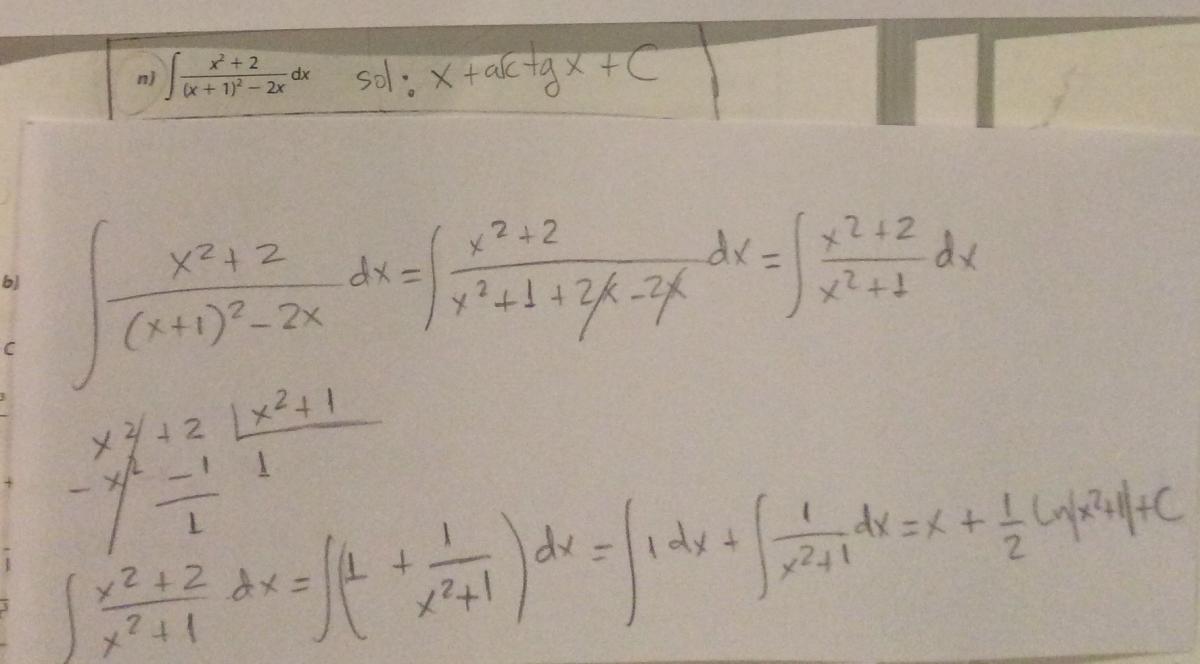 n) ∫ x² + 2 / (x + 1)² − 2x dx sol: x + arctg x + C
∫ x² + 2 / (x+1)² − 2x dx = ∫ x² + 2 / x² + 1 + 2x − 2x dx = ∫ x² + 2 / x² + 1 dx
b)
c
x² + 2 | x² + 1
− x² − 1 1
1
∫ x² + 2 / x² + 1 dx = ∫ (1 + 1 / x² + 1) dx = ∫ 1 dx + ∫ 1 / x² + 1 dx = x + 1/2 Ln|x²+1| + C